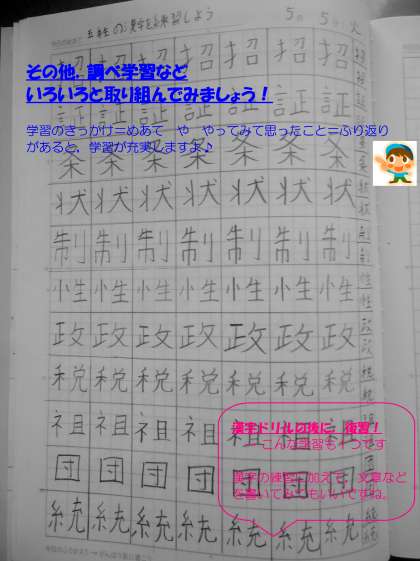 五年生の漢字を練習しよう 5月 5日 火
その他，調べ学習など
いろいろと取り組んでみましょう！
学習のきっかけ＝めあて　や　やってみて思ったこと＝ふり返り
があると，学習が充実しますよ♪
招 招 招 招 招 招 招
証 証 証 証 証 証 証
条 条 条 条 条 条 条
状 状 状 状 状 状 状
制 制 制 制 制 制 制
性 性 性 性 性 性 性
政 政 政 政 政 政 政
税 税 税 税 税 税 税
祖 祖 祖 祖 祖 祖 祖
団 団 団 団 団 団 団
統 統 統 統 統 統 統
漢字ドリルの後に，復習！
こんな学習も1つです
漢字の練習に加えて，文章など
を書いてみてもいいですね。